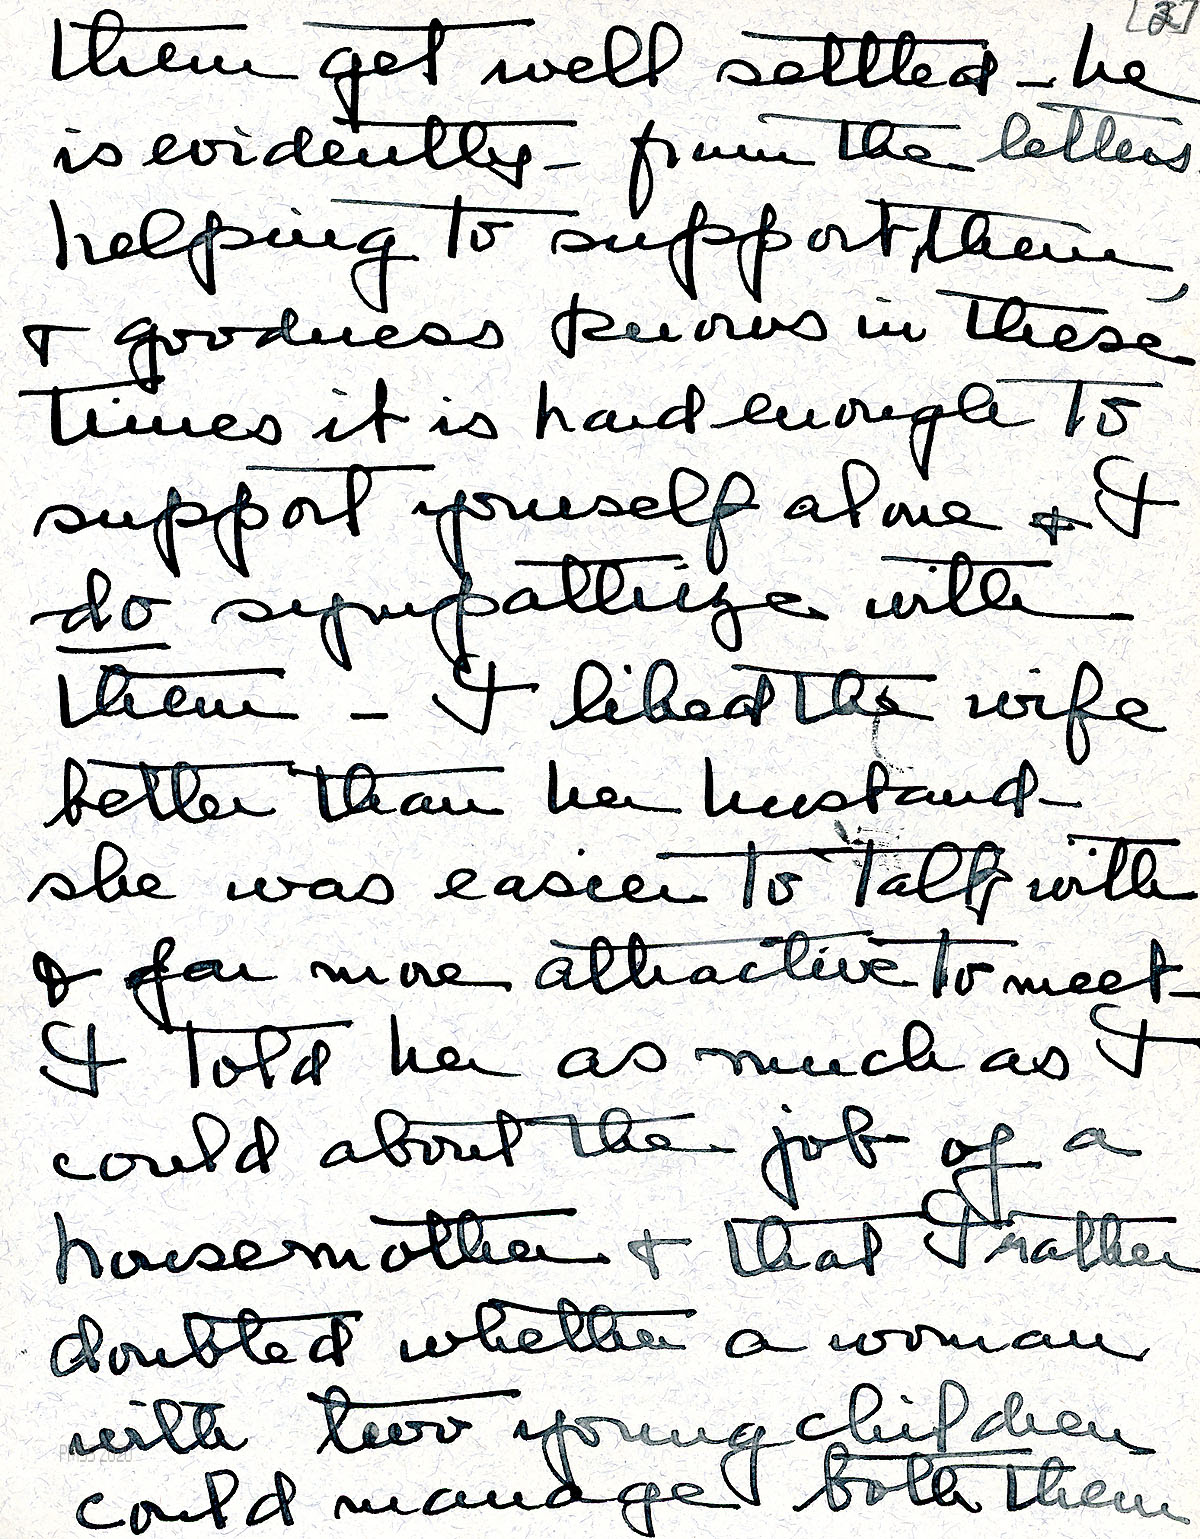 [2]
them get well settled - he
is evidently - from the letters
helping to support, them,
& goodness knows in these
times it is hard enough to
support yourself alone & I
do sympathize with
them - I liked the wife
better than her husband -
she was easier to talk with
& far more attractive to meet -
I told her as much as I
could about the job of a
housemother & that I rather
doubted whether a woman
with two young children
PMSS 2020
could manage both them